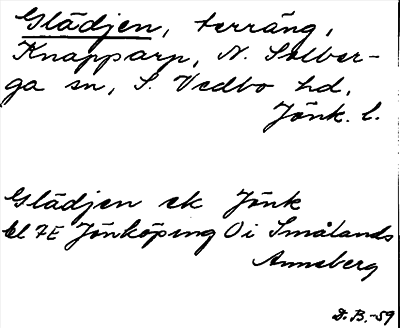 Glädjen, terräng,
Knapparp, N. Solber-
ga sn, S. Vedbo hd,
Jönk. l.
Glädjen ek Jönk
bl 7E Jönköping O i Smålands
Anneberg
D.B.-59